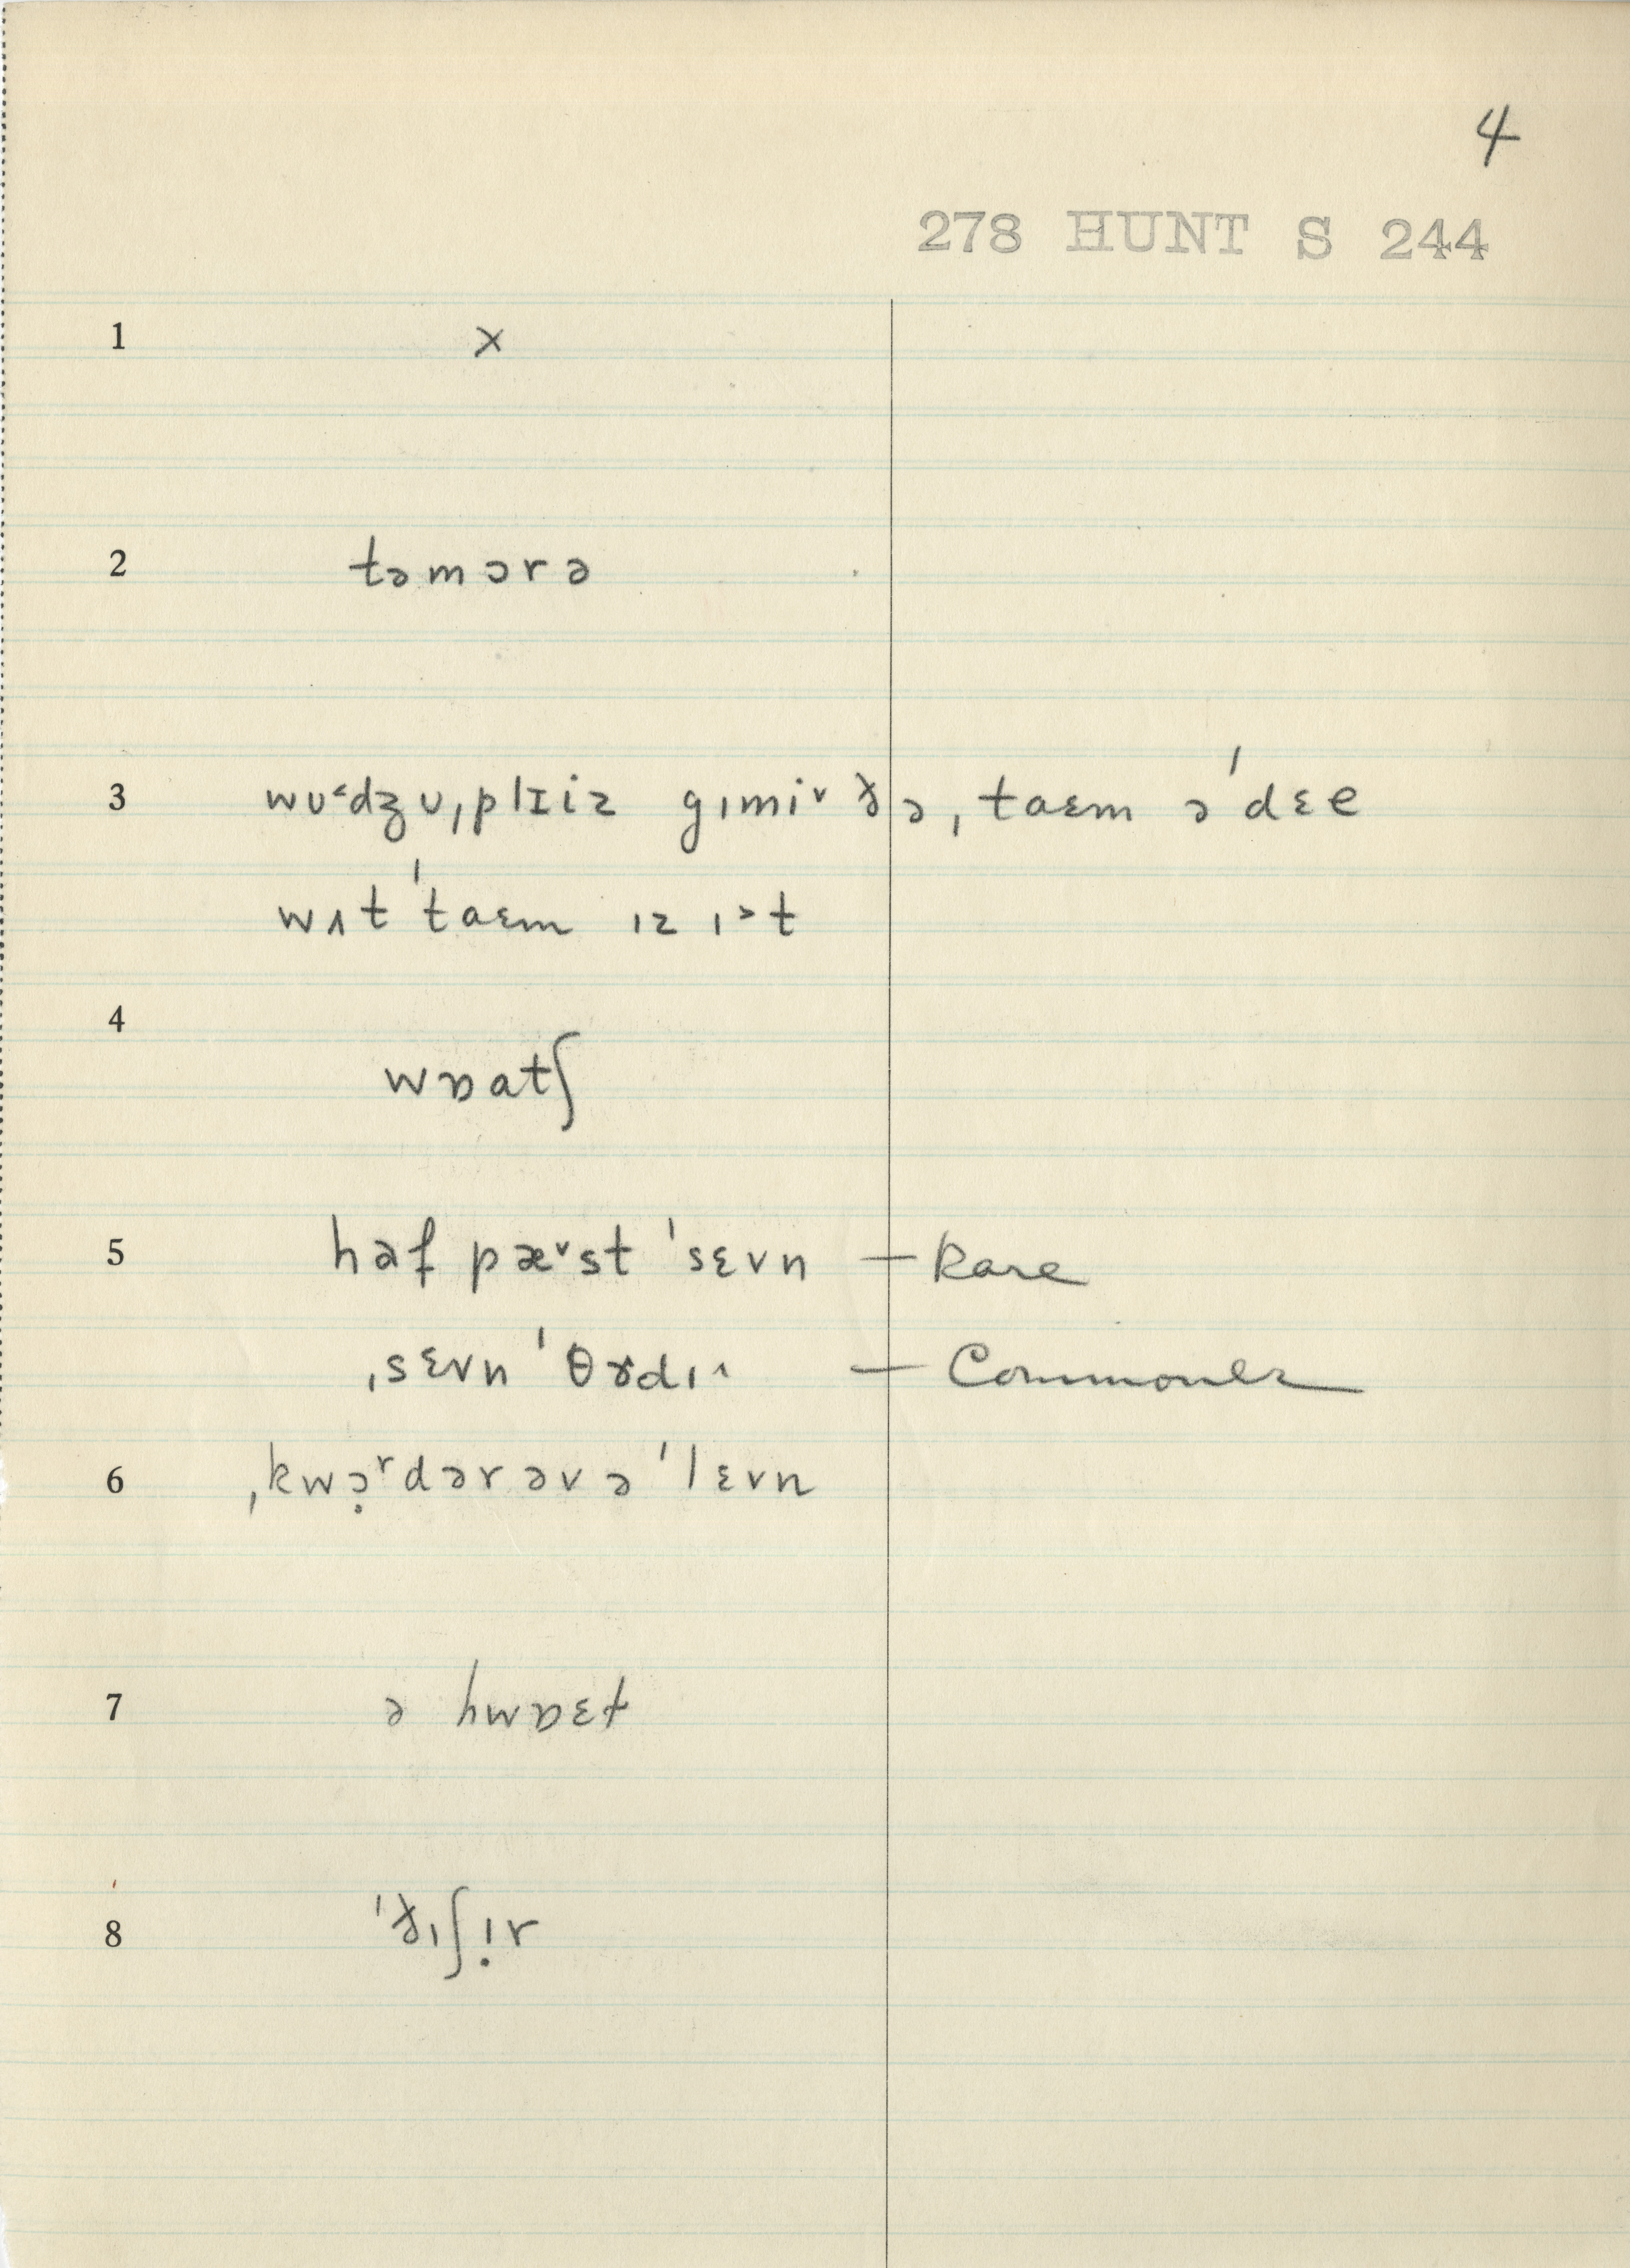 4
278 HUNT S 244
1 x
2 təmɔrə
3 wʊ˂dʒʊ ˌplɪiz gɪmi˅ ðə ˌtaɛm ə ˈdɛe
wʌt ˈtaɛm ɪz ɪ˃t
4 wɒatʃ
5 haf pæ˅st ˈsɛvn — Rare
ˌsɛvn ˈθɝdɪ˄ — Commoner
6 ˌkwɔ̣ʳdər əv ə ˈlɛvn
7 ə hwɒɛt
8 ˈðɪʃɪ̣r